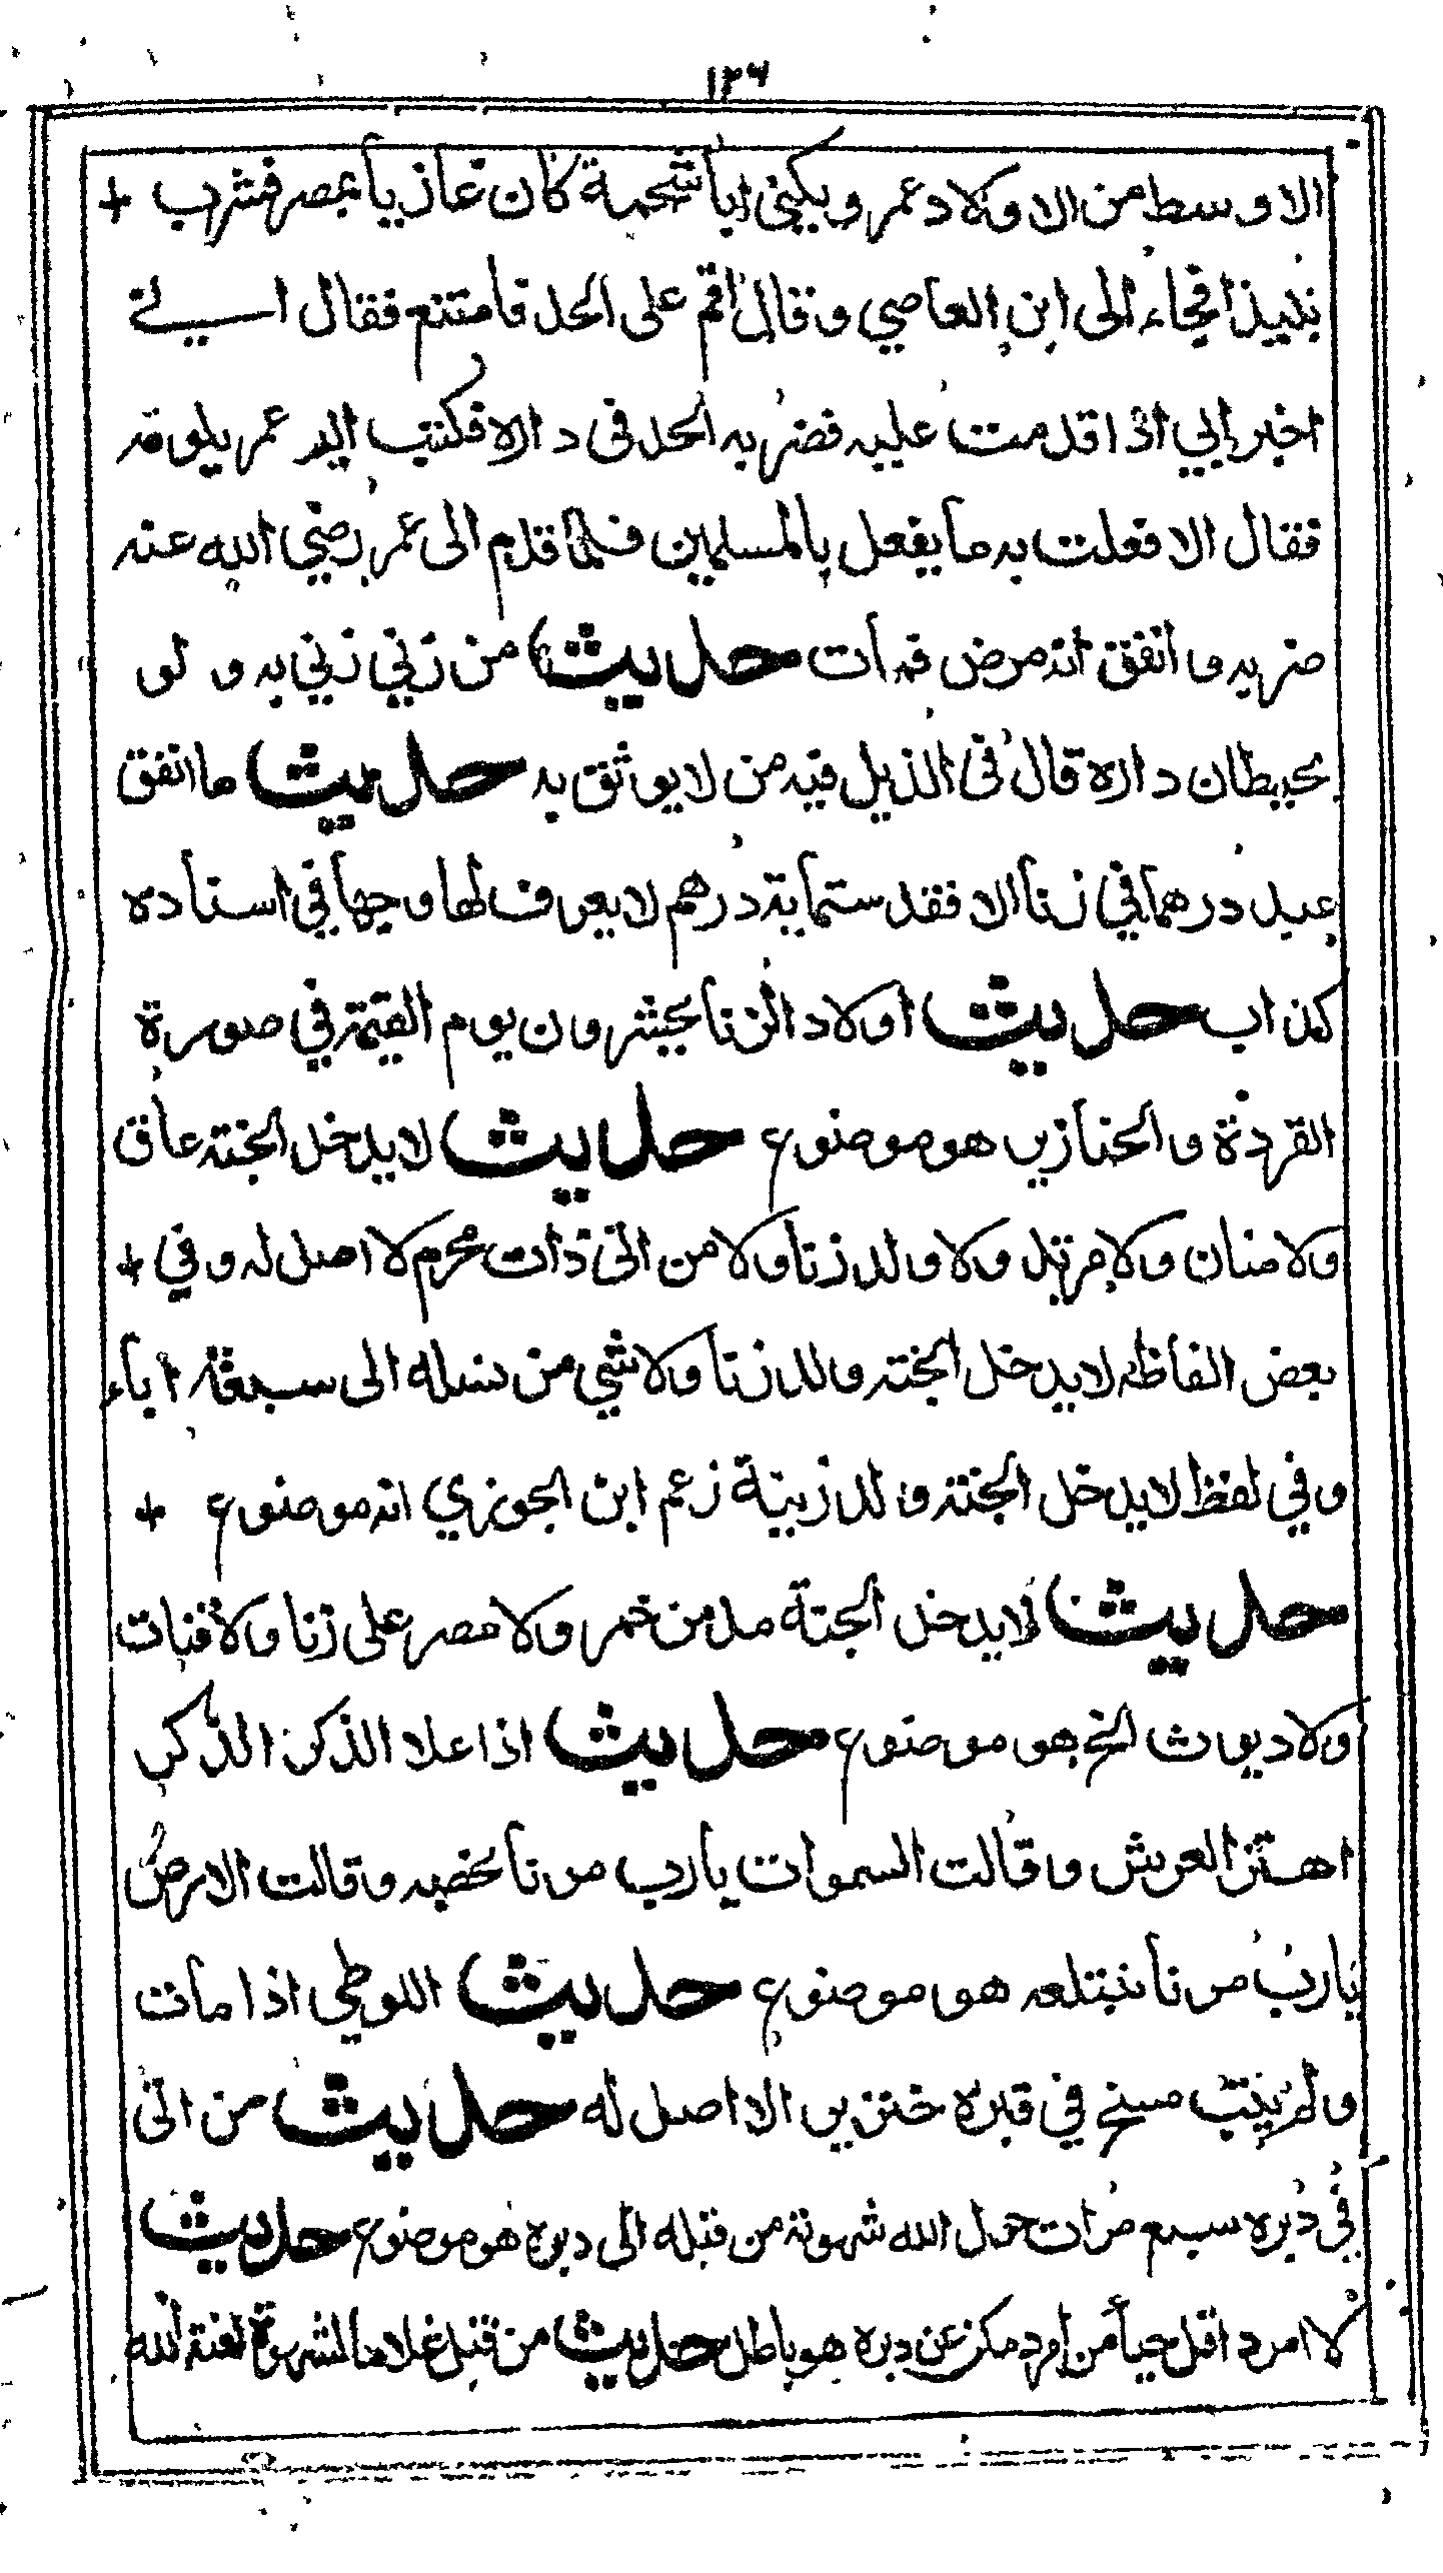 ١٢٦
الاوسط من الاولاد عمر ويكنى ابا شحمة كان غازيا بمصر فشرب +
نبيذا فجاء الى ابن العاصي وقال اقم على الحد فامتنع فقال اسے
اخبر ابي اذا قدمت عليه فضربه الحد في داره فكتب اليه عمر يلومه
فقال الا فعلت به ما يفعل بالمسلمين فلما قدم الى عمر رضي الله عنه
ضربه واتفق انه مرض فمات حديث من زني زني به ولو
بحيطان داره قال في الذيل فيه من لا يوثق به حديث ما انفق
عبد درهما في زنا الا فقد ستماية درهم لا يعرف لها وجها في اسناده
كذاب حديث اولاد الزنا يحشرون يوم القيمة في صورة
القردة والخنازير هو موضوع حديث لا يدخل الجنة عاق
ولا منان ولا مرتد ولا ولد زنا ولا من اتى ذات محرم لا اصل له وفي +
بعض الفاظه لا يدخل الجنة ولد زنا ولا شي من نسله الى سبعة اباء
وفي لفظ لا يدخل الجنة ولد زنية زعم ابن الجوزي انه موضوع +
حديث لا يدخل الجنة مدمن خمر ولا مصر على زنا ولا قتات
ولا ديوث الخ هو موضوع حديث اذا علا الذكر الذكر
اهتز العرش وقالت السموات يارب مرنا نحصبه وقالت الارض
يارب مرنا نبتلعه هو موضوع حديث اللوطي اذا مات
ولم يتب مسخ في قبره خنزير الا اصل له حديث من اتى
في دبره سبع مرات حول الله شهوته من قبله الى دبره هو موضوع حديث
لا امرد اقل حياء من امرد مكن عن دبره هو باطل حديث من قبل غلاما لشهوة لعنه الله